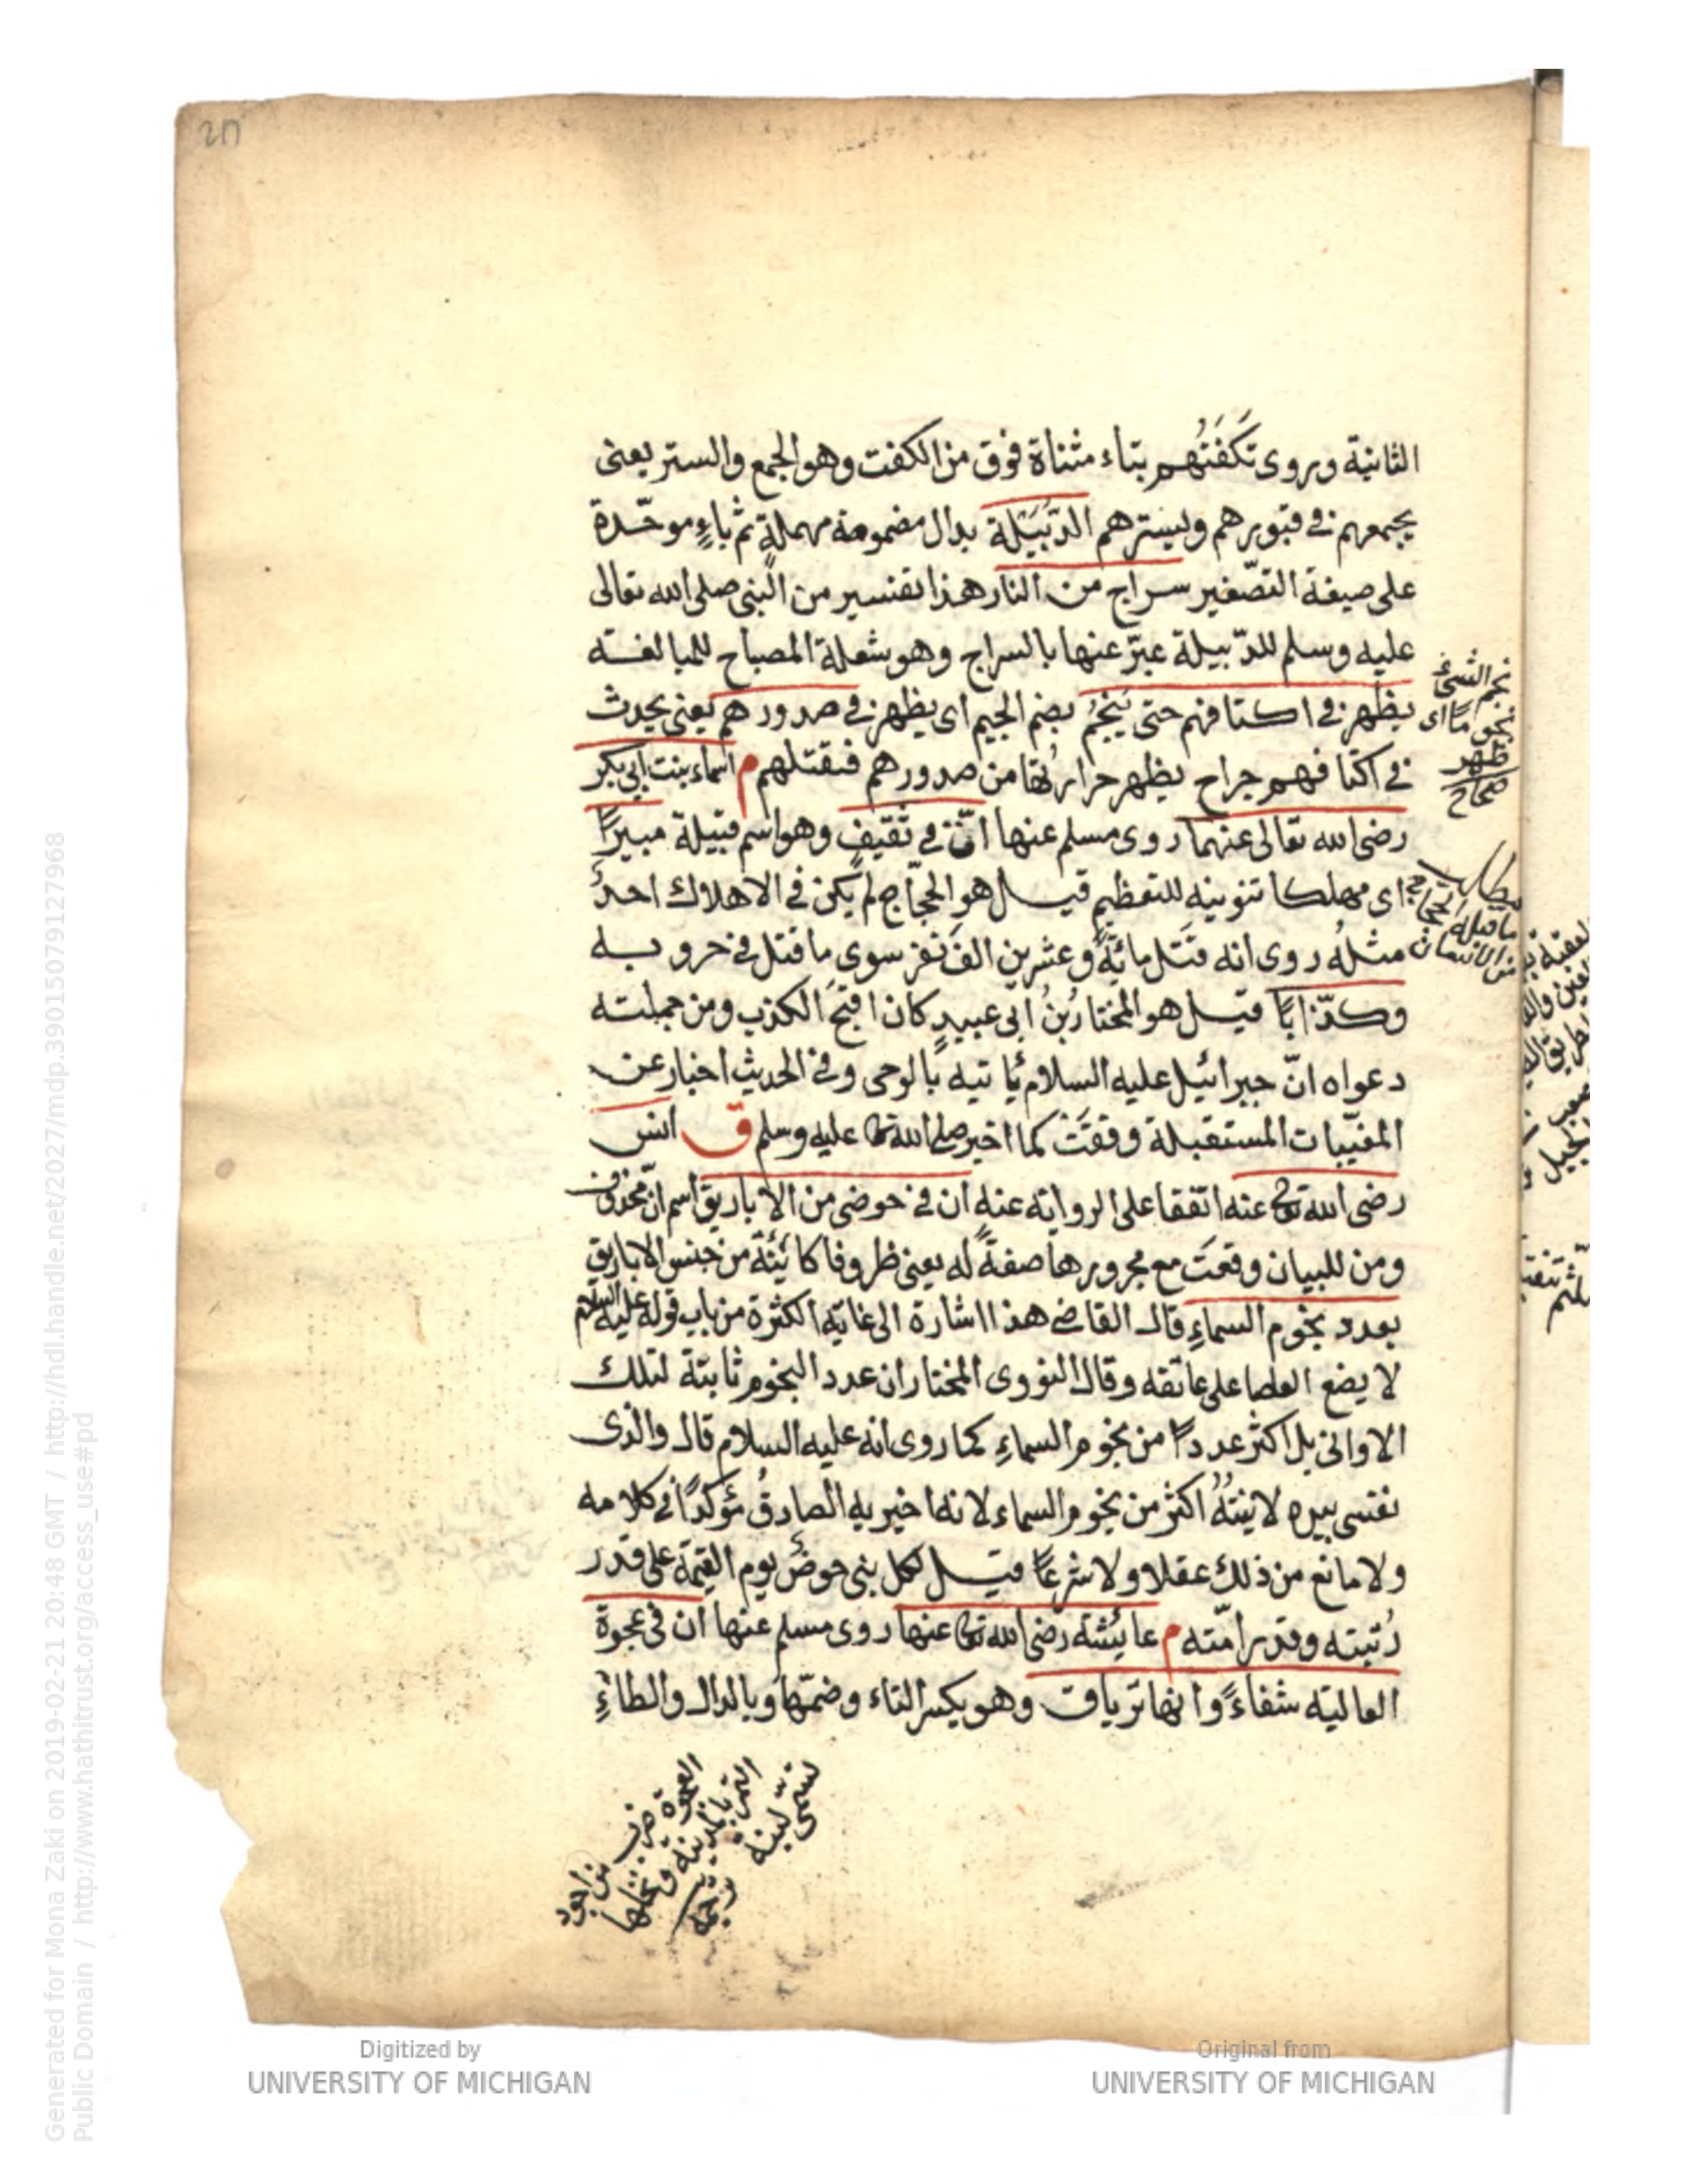 الثانية وروى تَكْفَتُهم بتاء مثناة فوق من الكفت وهو الجمع والستر يعنى
يجمعهم فى قبورهم ويسترهم الدُّبَيْلَة بدال مضمومة مهملةٍ ثم باءٍ موحّدة
على صيغة التصّغير سراج من النار هذا تفسير من النبى صلى الله تعالى
عليه وسلم للدّبيلة عبّر عنها بالسراج وهو شعلة المصباح للمبالغة
يظهر فى اكتافهم حتى يَنْجُمُ بضم الجيم اى يظهر فى صدورهم يعنى يحدث
فى اكتافهم جراح يظهر حرارتُها من صدورهم فتقتلهم م اسماء بنت ابى بكر
رضى الله تعالى عنهما روى مسلم عنها انّ فى ثَقيفٍ وهو اسم قبيلة مبيرًا
اى مهلكا تنوينه للتعظيم قيل هو الحجّاج لم يكن فى الاهلاك احدٌ
مثلُه روى انه قَتَل مائةً وعشرين الفَ نفر سوى ما قتل فى حروبه
وكذّابًا قيل هو المختارُ بْنُ ابى عبيدٍ كان اقبَحَ الكذب ومن جملته
دعواه انّ جبرائيل عليه السلام يُاتيه بالوحى وفى الحديث اخبار عن
المغيّبات المستقبلة وقعَتْ كما اخبر صلى الله تعالى عليه وسلم ق انس
رضى الله تعالى عنه اتّفقا على الرواية عنه ان فى حوضى من الاباريق اسم انّ محذوف
ومن للبيان وقعَت مع مجرورها صفةً له يعنى ظروفا كائنة من جنس الاباريق
بعدد نجوم السماءِ قال القاضى هذا اشارة الى غاية الكثرة من باب قوله عليه السلام
لا يضع العصا على عاتقه وقال النووى المختار ان عدد النجوم ثابتة لتلك
الاوانى بل اكثر عددًا من نجوم السماءِ كما روى انه عليه السلام قال والذى
نفسى بيده لانيتُهُ اكثر من نجوم السماء لانه اخبر به الصادقُ مؤكدًا فى كلامه
ولا مانع من ذلك عقلا ولا شرعًا قيل لكل نبى حوضٌ يوم القيمة على قدر
رُتبته وقدر امّته م عائشة رضى الله تعالى عنها روى مسلم عنها ان فى عجوة
العالية شفاءً وانها ترياق وهو بكسر التاء وضمّها وبالدال والطاءِ
نجم الشئ
ينجم نجوما اى
ظهر
صحاح
العجوة ضرب من اجود
التمر بالمدينة ونخلتها
تسمّى لينة